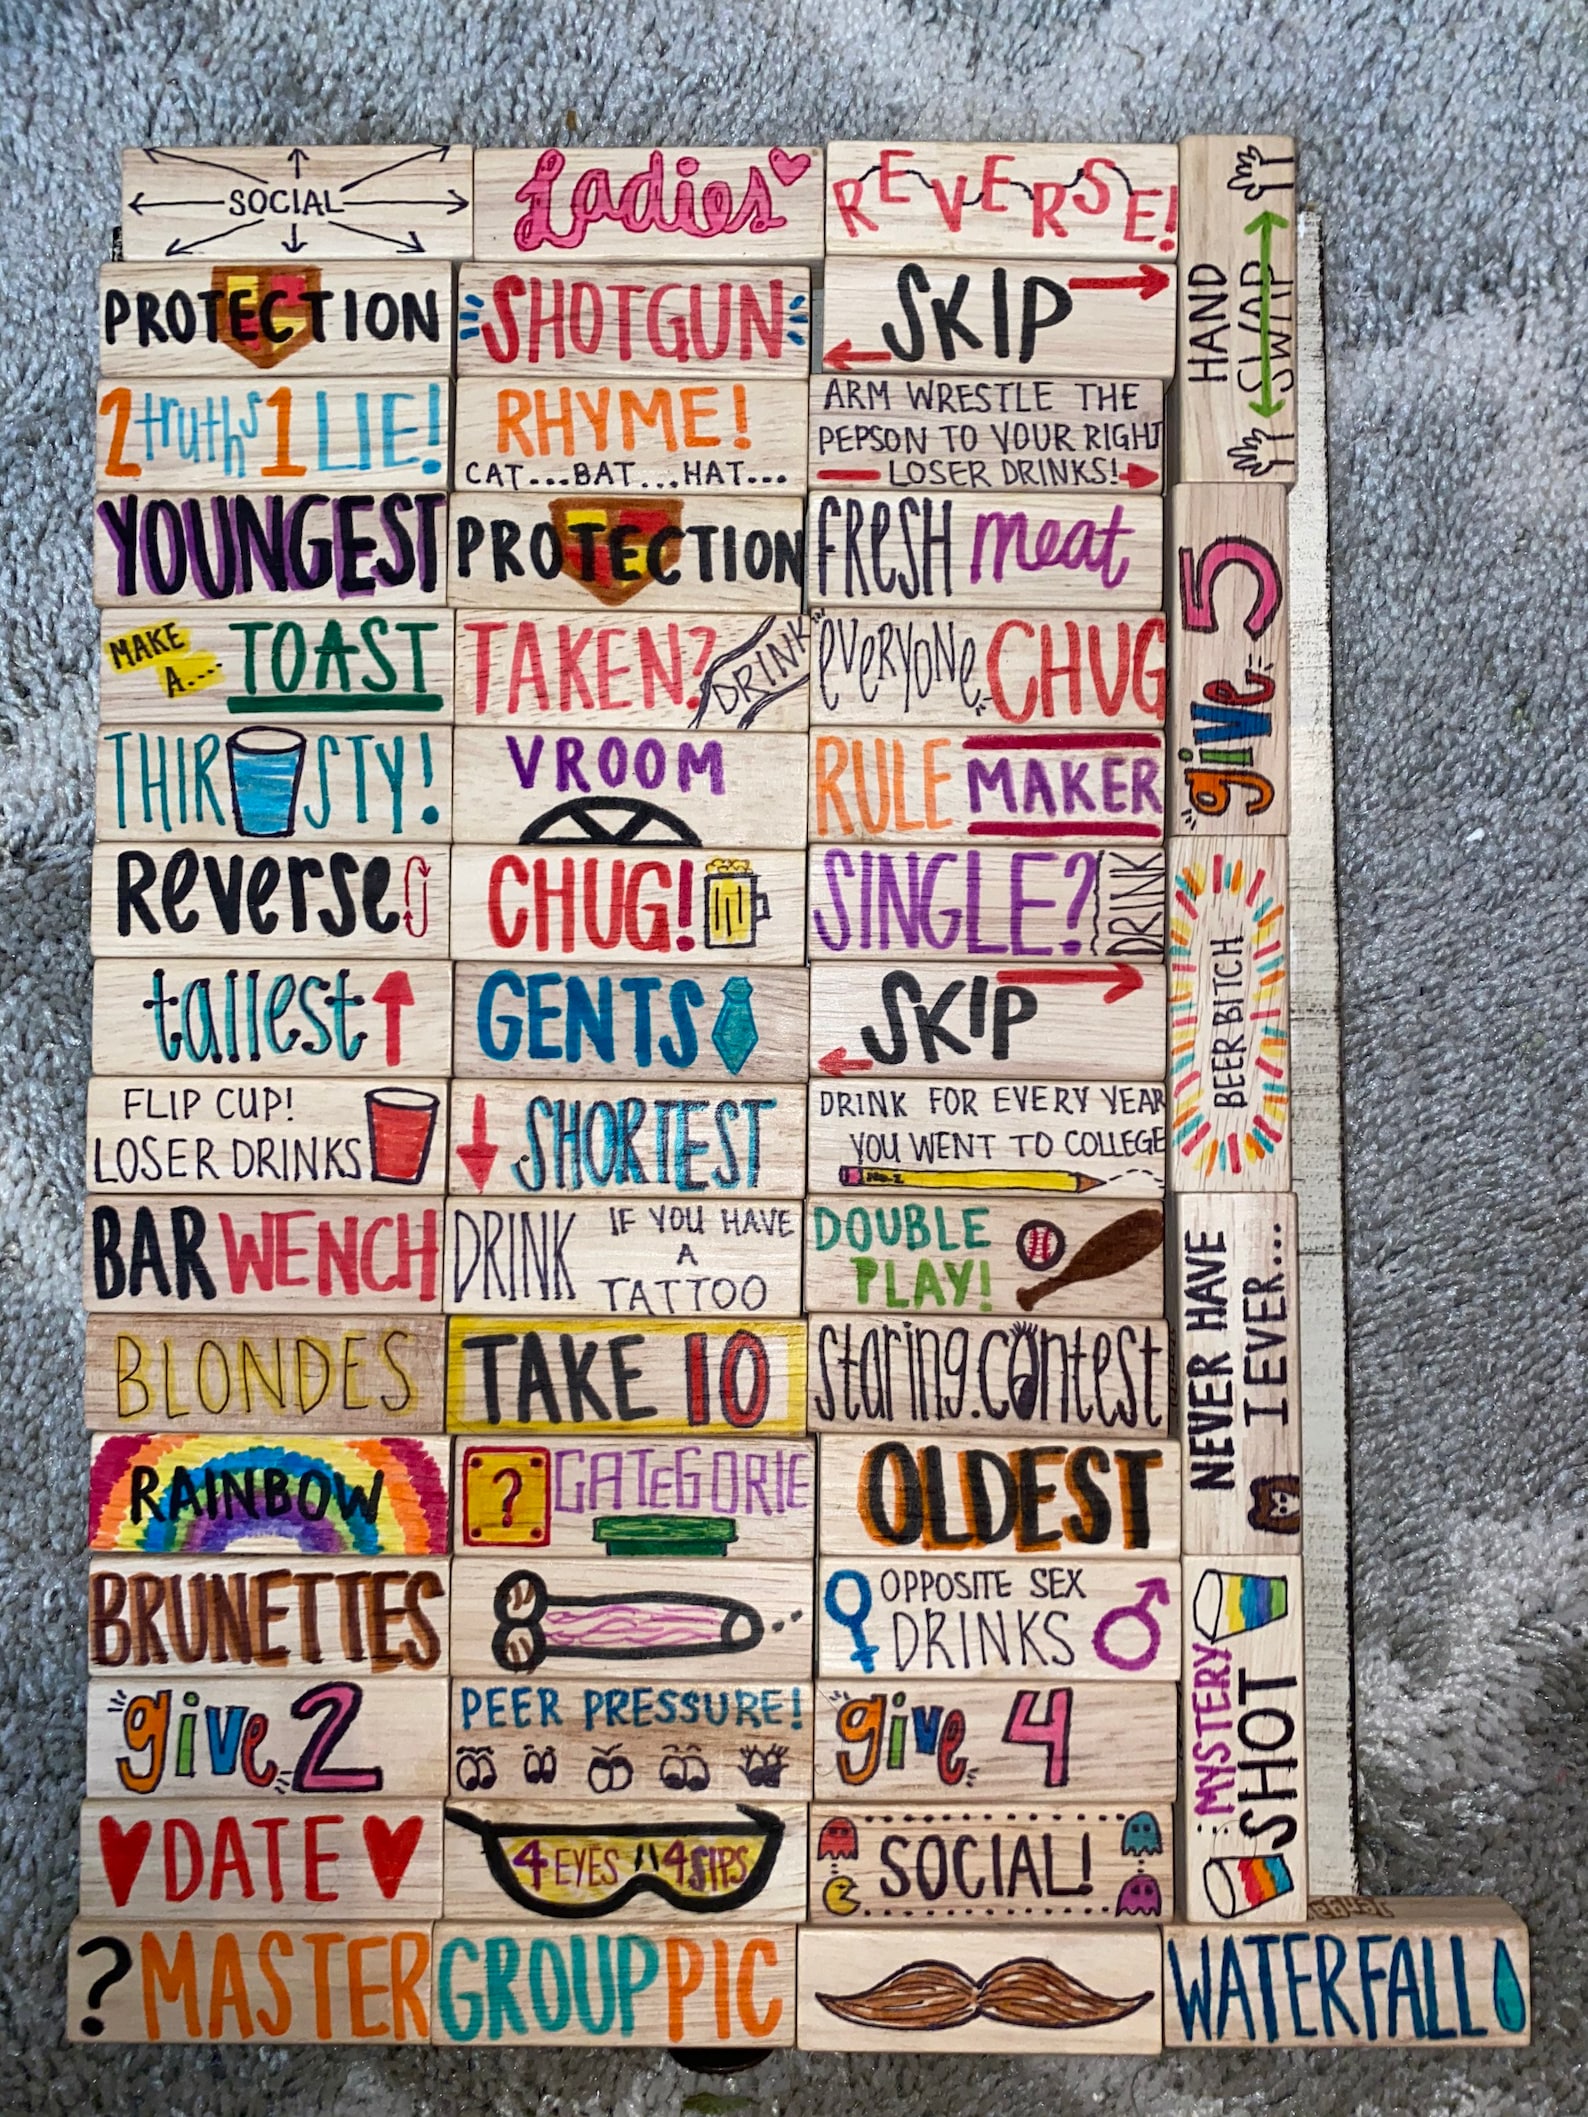 SOCIAL
Ladies
REVERSE!
HAND
SWAP
PROTECTION
SHOTGUN
SKIP
2 truths 1 LIE!
RHYME!
CAT...BAT...HAT...
ARM WRESTLE THE
PEPSON TO YOUR RIGHT
LOSER DRINKS!
YOUNGEST
PROTECTION
FRESH meat
give 5
MAKE
A...
TOAST
TAKEN?
DRINK
everyone
CHUG
THIRSTY!
VROOM
RULE MAKER
Reverse
CHUG!
SINGLE?
DRINK
BEER BITCH
tallest
GENTS
SKIP
FLIP CUP!
LOSER DRINKS
SHORTEST
DRINK FOR EVERY YEAR
YOU WENT TO COLLEGE
No.2
BAR WENCH
DRINK
IF YOU HAVE
A
TATTOO
DOUBLE
PLAY!
NEVER HAVE
I EVER...
BLONDES
TAKE 10
staring.contest
RAINBOW
?
CATEGORIE
OLDEST
BRUNETTES
OPPOSITE SEX
DRINKS
MYSTERY
SHOT
give 2
PEER PRESSURE!
give 4
DATE
4 EYES 4 SIPS
SOCIAL!
Jenga
? MASTER
GROUP PIC
WATERFALL